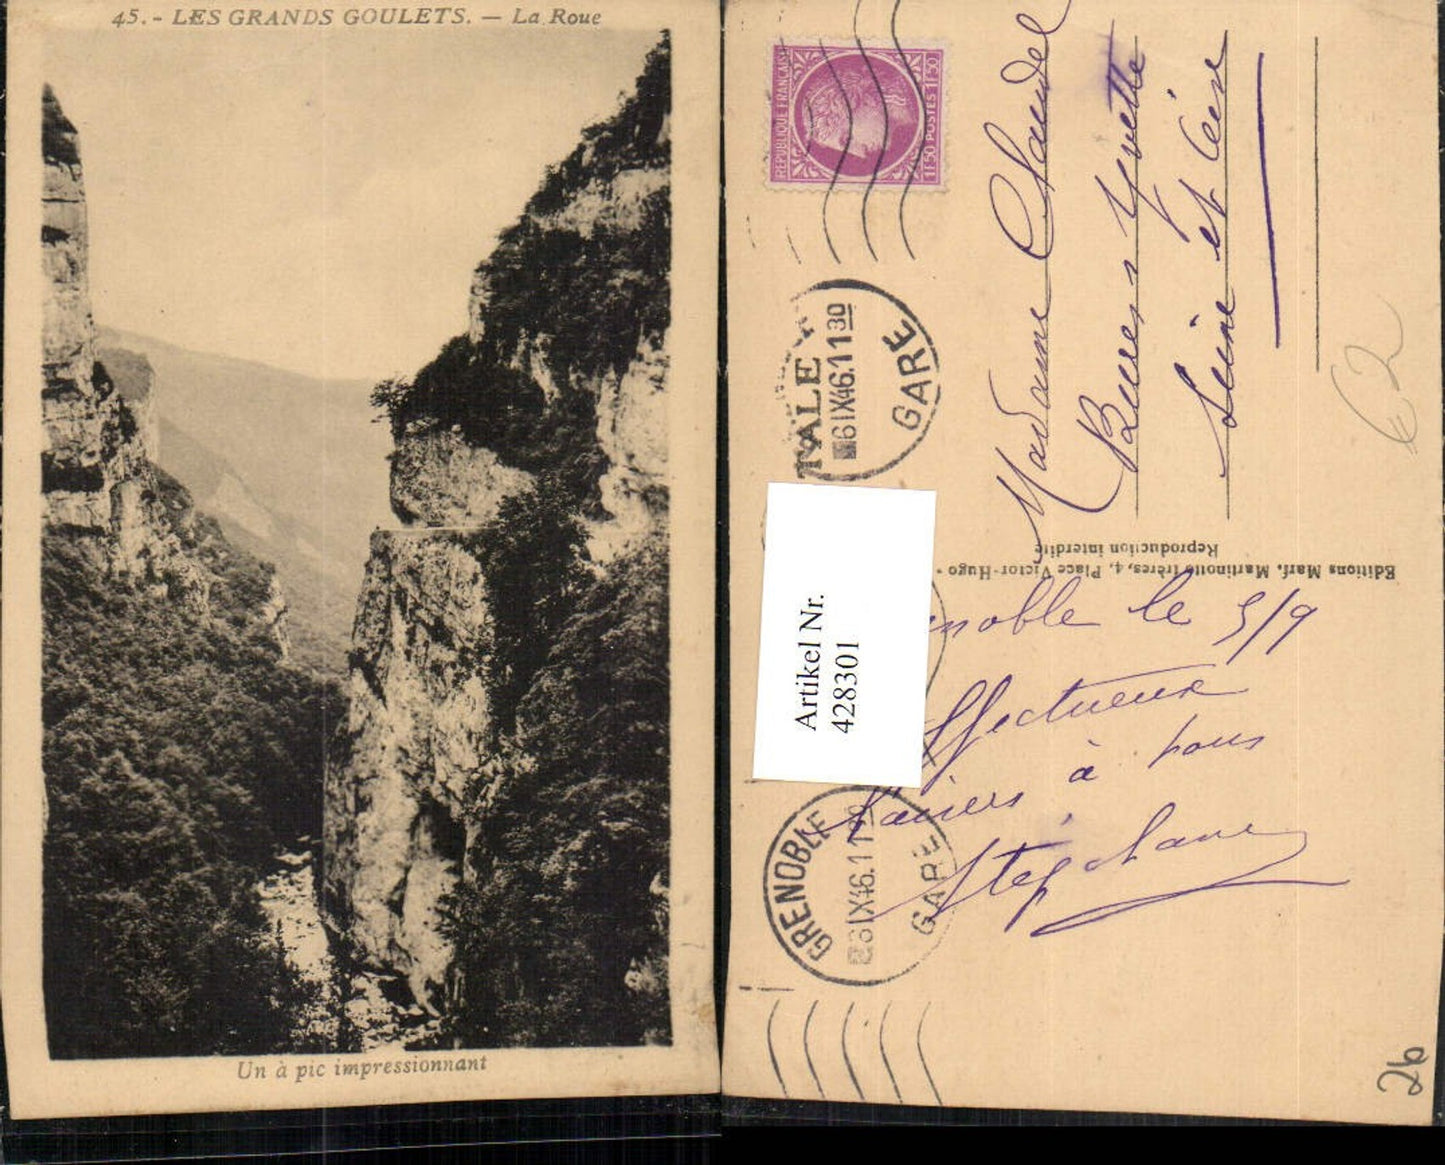 45. - LES GRANDS GOULETS. — La Roue
Un à pic impressionnant
REPUBLIQUE FRANÇAISE
1F50 POSTES 1F50
TALE
6 IX46.11 30
GARE
Madame Claudel
Bures s Yvette
Seine et Oise
€2
Editions Marf, Martinotto frères, 4, Place Victor-Hugo -
Reproduction interdite
Artikel Nr.
428301
enoble le 5/9
ffectueux
à vous
Stéphane
GRENOBLE
GARE
26